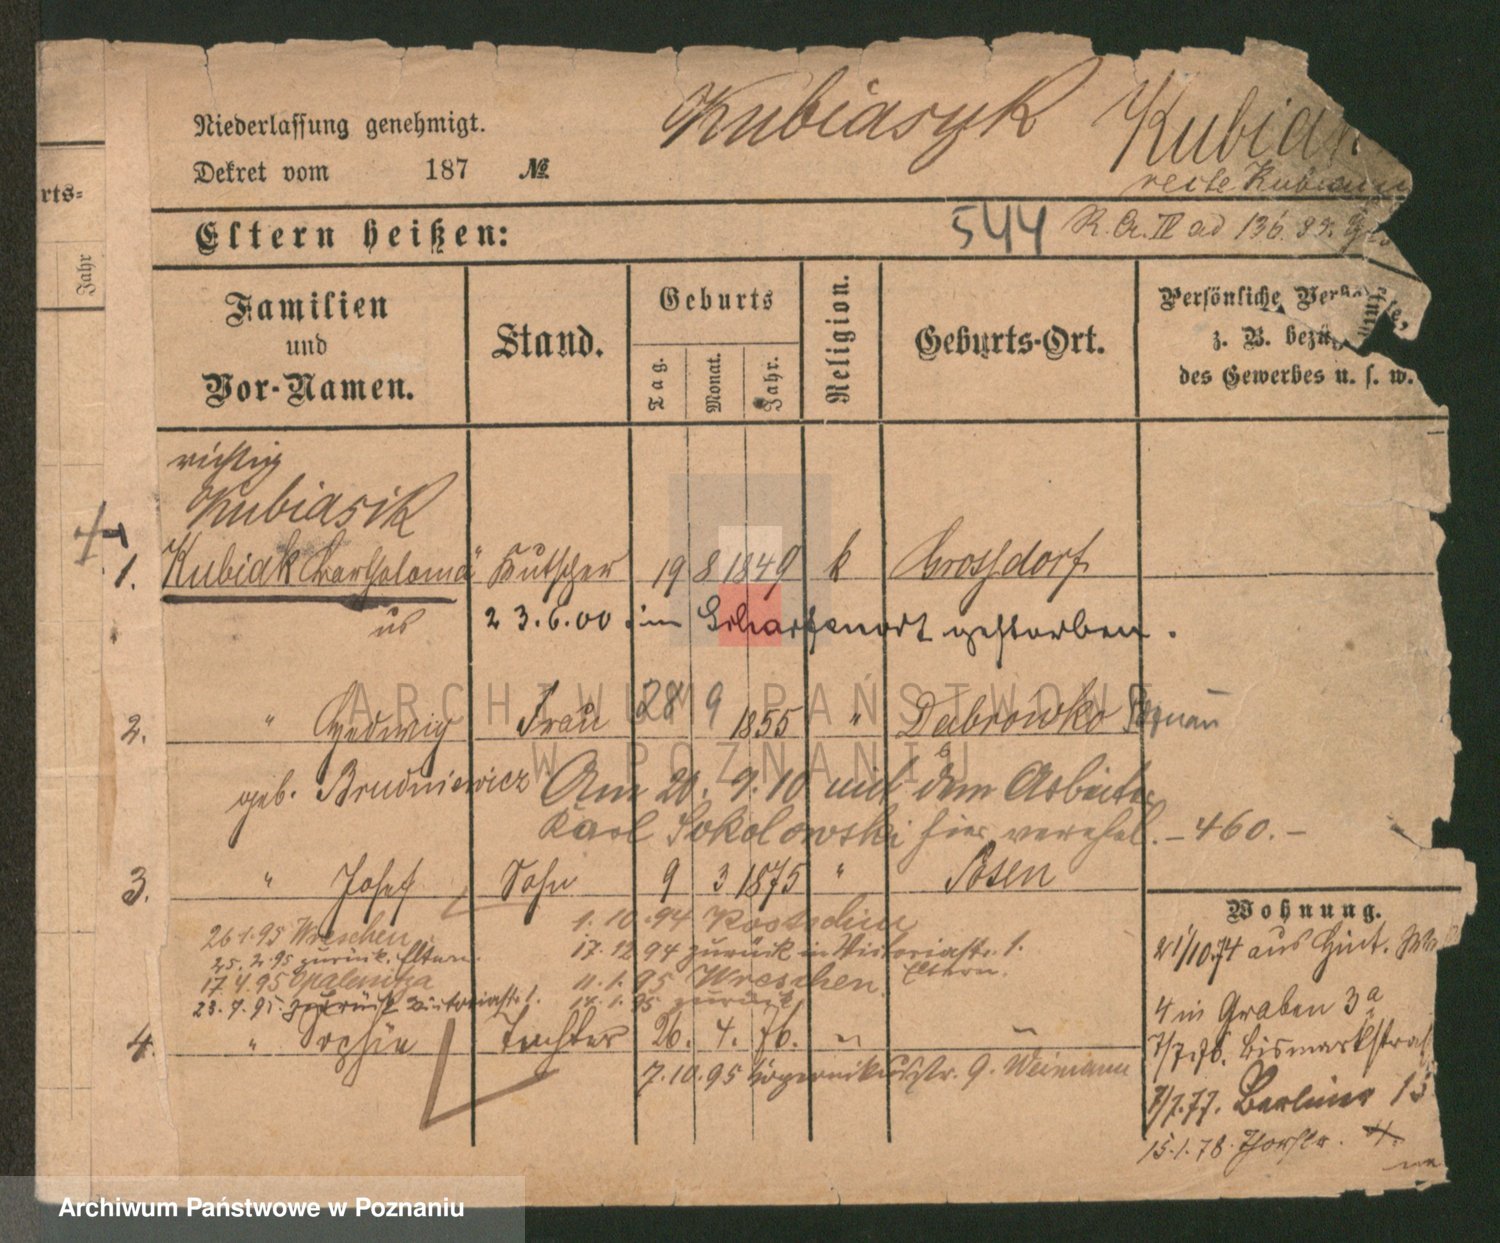 Kubiaszyk Kubiak
recte Kubia
Niederlassung genehmigt.
Dekret vom 187 №
rts-
Jahr
Eltern heißen:
544 R. A. IV ad 136.
Familien
und
Vor-Namen.
Stand.
Geburts
Tag.
Monat.
Jahr.
Religion.
Geburts-Ort.
Persönliche
z. B.
des Gewerbes u. s. w.
richtig
Kubiasik
1. Kubiak Bartholomä Kutscher 19 8 1849 k Grossdorf
us 23.6.00 im Scharfenort gestorben.
2. " Hedwig Frau 28 9 1855 " Dabrowko Poznań
geb. Brudniewicz Am 20. 9. 10 mit dem Arbeiter
Karl Sokolowski hier verehel. – 460. –
3. " Josef Sohn 9 3 1875 " Posen
26.1.95 Wreschen 1.10.94
25.2.95 zurück. Eltern. 17.12.94 zurück in Victoriastr. 1.
17.4.95 Opalenitza 11.1.95 Wreschen. Eltern.
23.7.95 zurück Victoriastr. 1. 14.1.95 zurück
4. " Sophie Tochter 26. 4. 76. " "
7.10.95 9. Weimann
Wohnung.
21/10.74 aus
4 in Graben 3a
7/7.76. Bismarkstraß
7/7.77. Berliner 15
15.1.78. Thorstr. 4.
ARCHIWUM PAŃSTWOWE
W POZNANIU
Archiwum Państwowe w Poznaniu